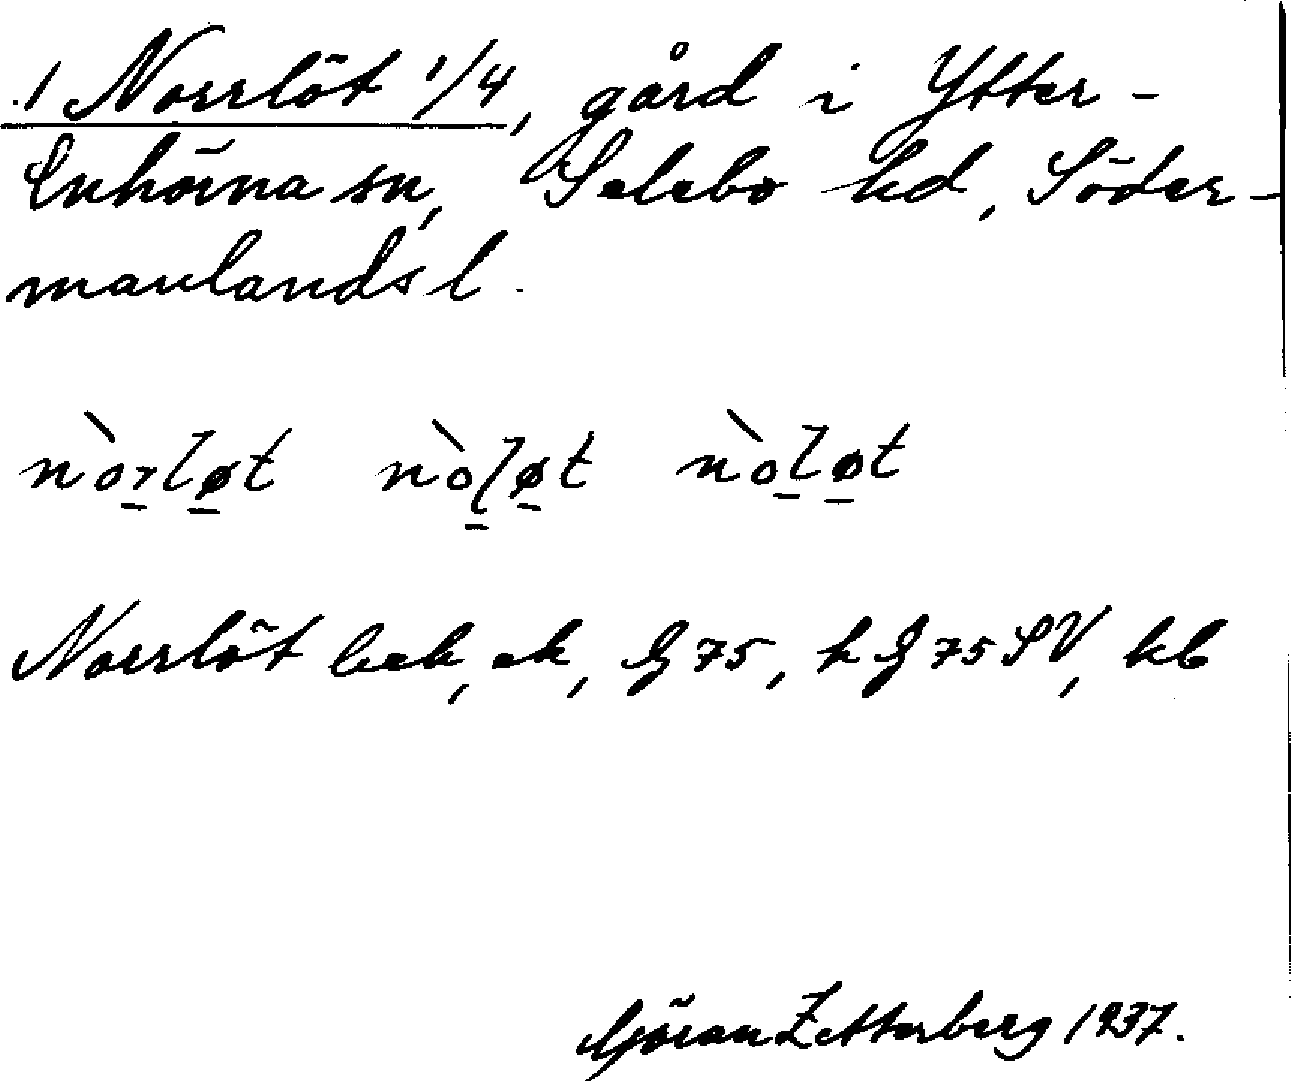 .1 Norrlöt 1/4, gård i Ytter-
Enhörna sn, Selebo hd, Söder-
manlands l.
nòrløt nòløt nòløt
Norrlöt bek, ek, G 75, h G 75 SV, kb
Göran Zetterberg 1937.